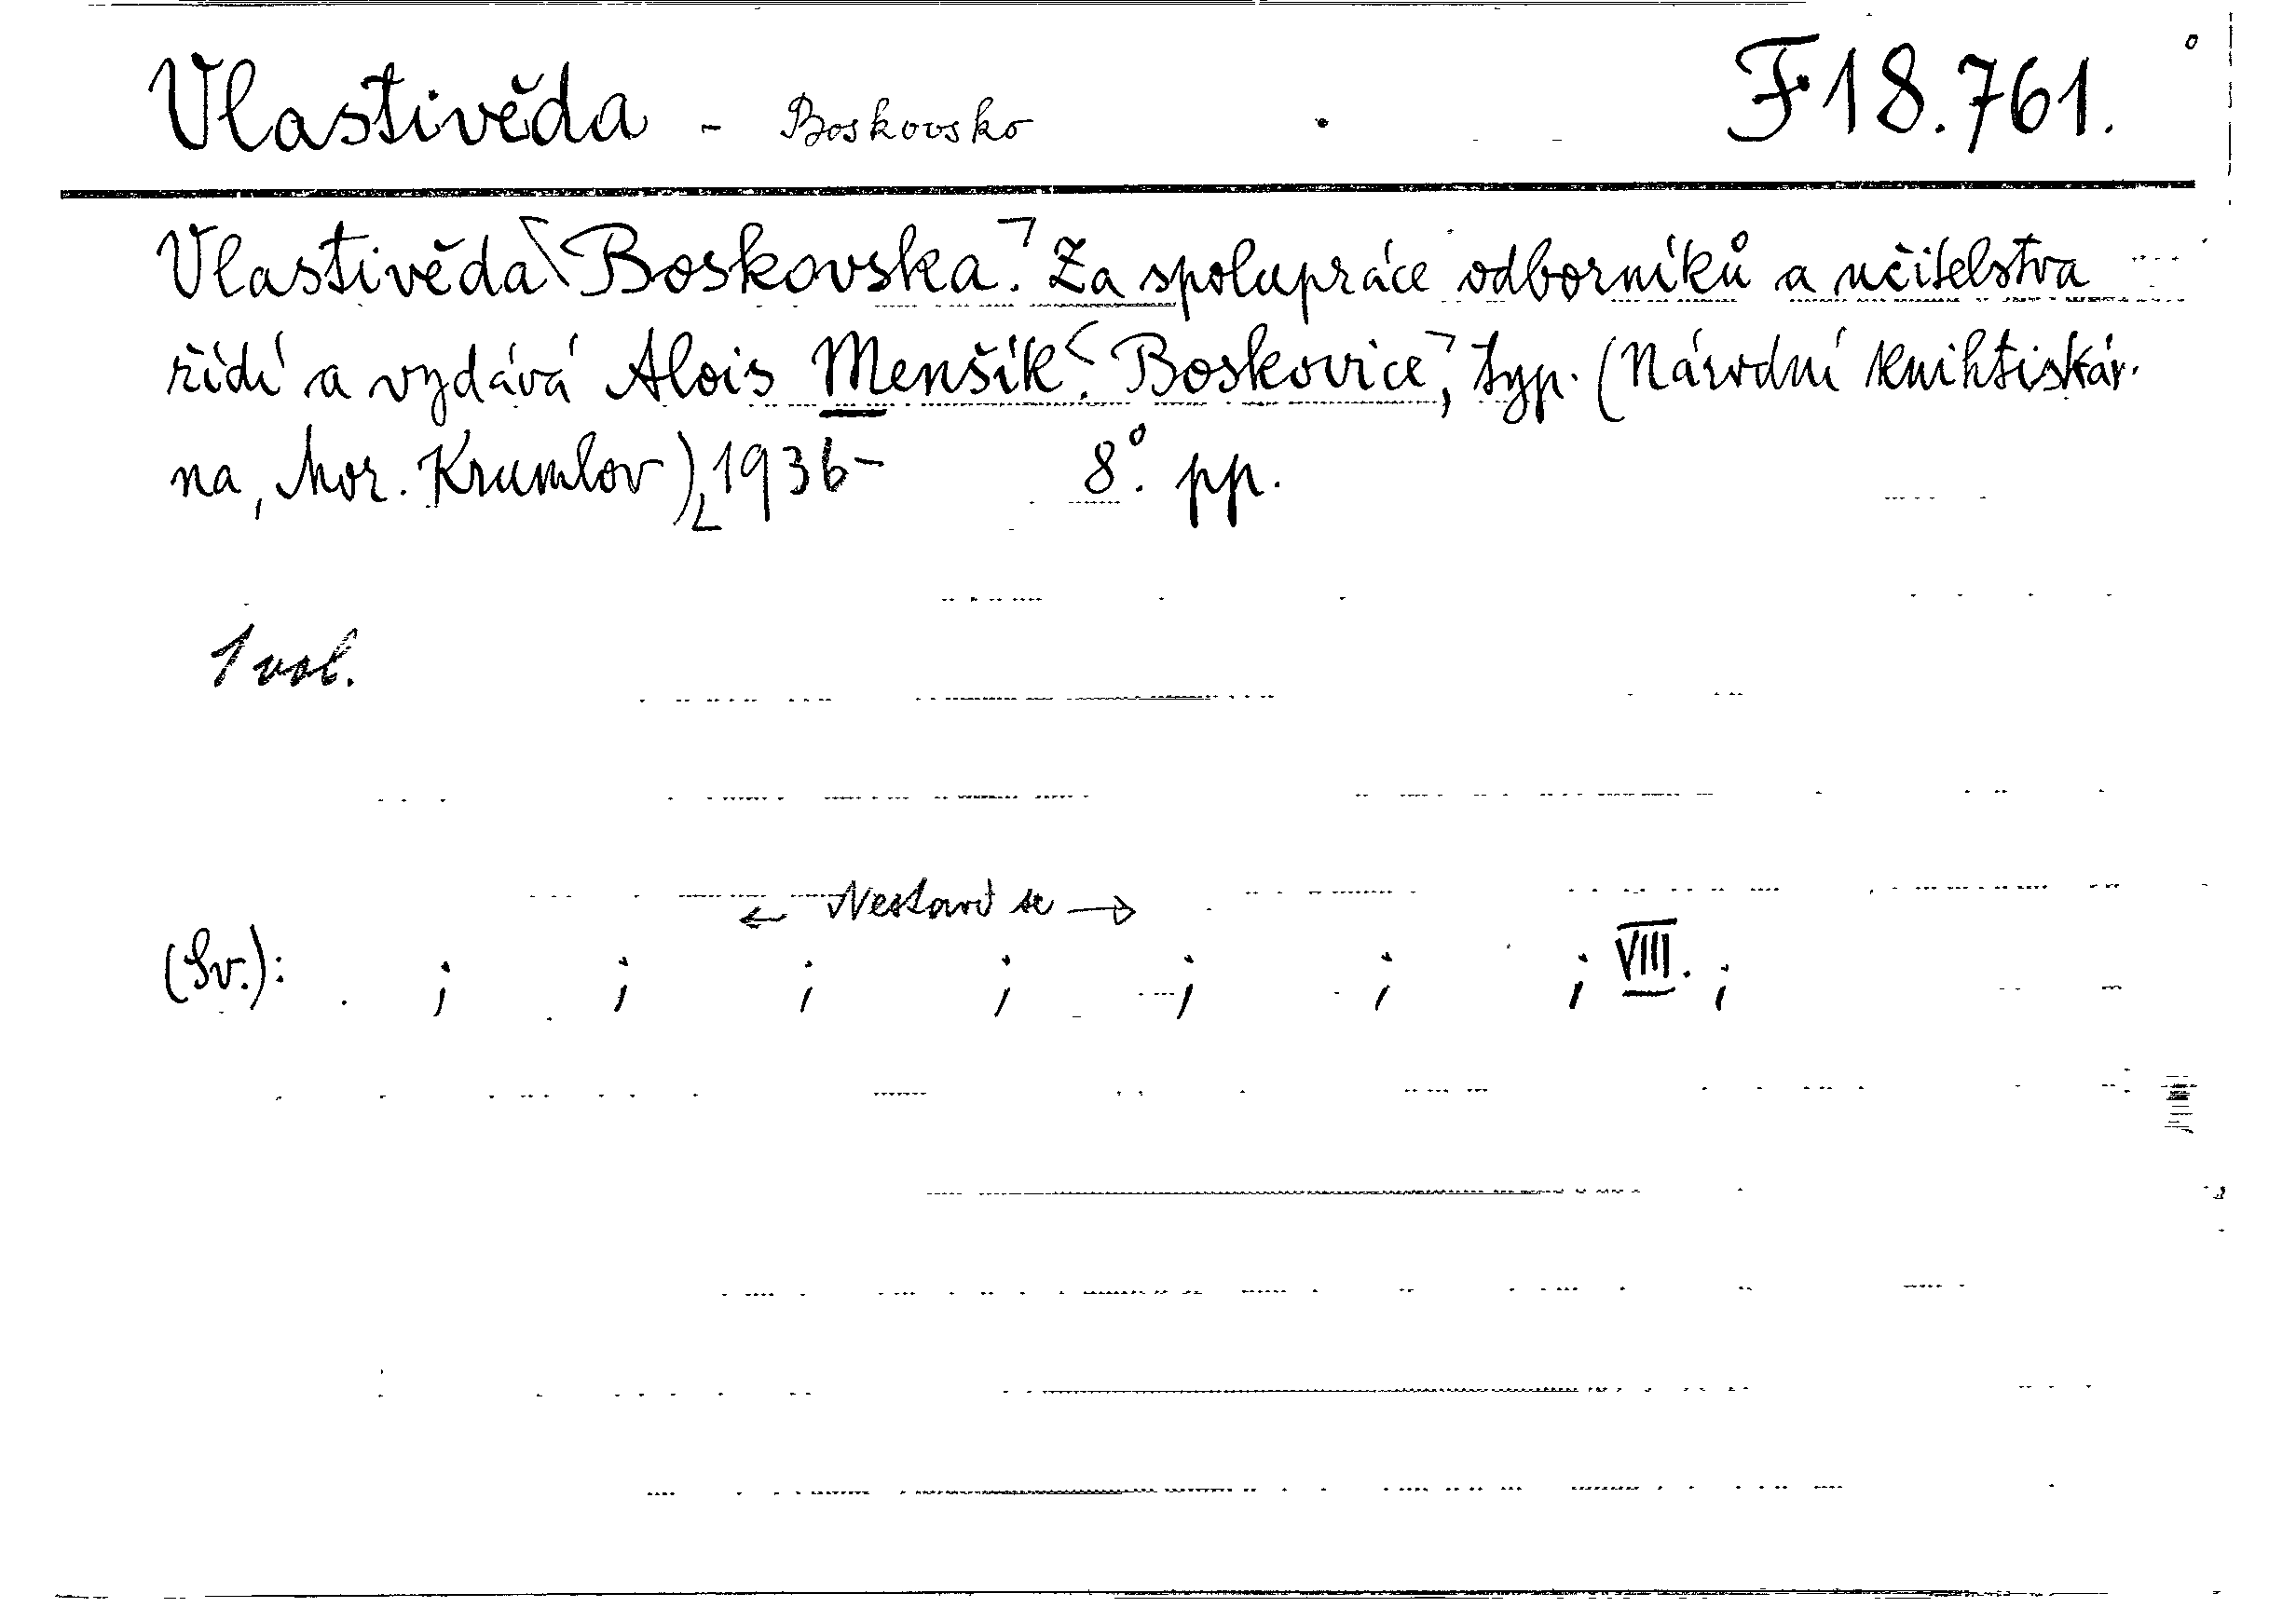 Vlastivěda - Boskovsko F 18.761.
Vlastivěda Boskovska. Za spolupráce odborníků a učitelstva
řídí a vydává Alois Menšík. Boskovice, typ. (Národní knihtiskár-
na, Mor. Krumlov) 1936- 8°. pp.
1 vol.
← Nestaví se →
(Sv.): ; ; ; ; ; ; ; VIII. ;